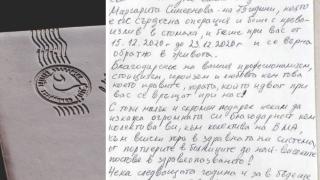 Маргарита Симеонова - на 73 години, която
е със сърдечна операция и беше с кръво-
излив в стомаха, и беше при вас от
15.12.2020г до 23.12.2020г и се върна
обратно в живота.
Благодарение на вашия професионализъм,
стоицизъм, героизъм и любов към това
което правите, хората, които идват при
вас се връщат при нас!
С този малък и скромен подарък искам да
изкажа огромната си благодарност към
колектива ви, към колектива на ВМА,
към всички хора в здравната ни система,
от портиерите в болниците до най-високите
постове в здравеопазването!
Нека следващата година и за в бъдеще